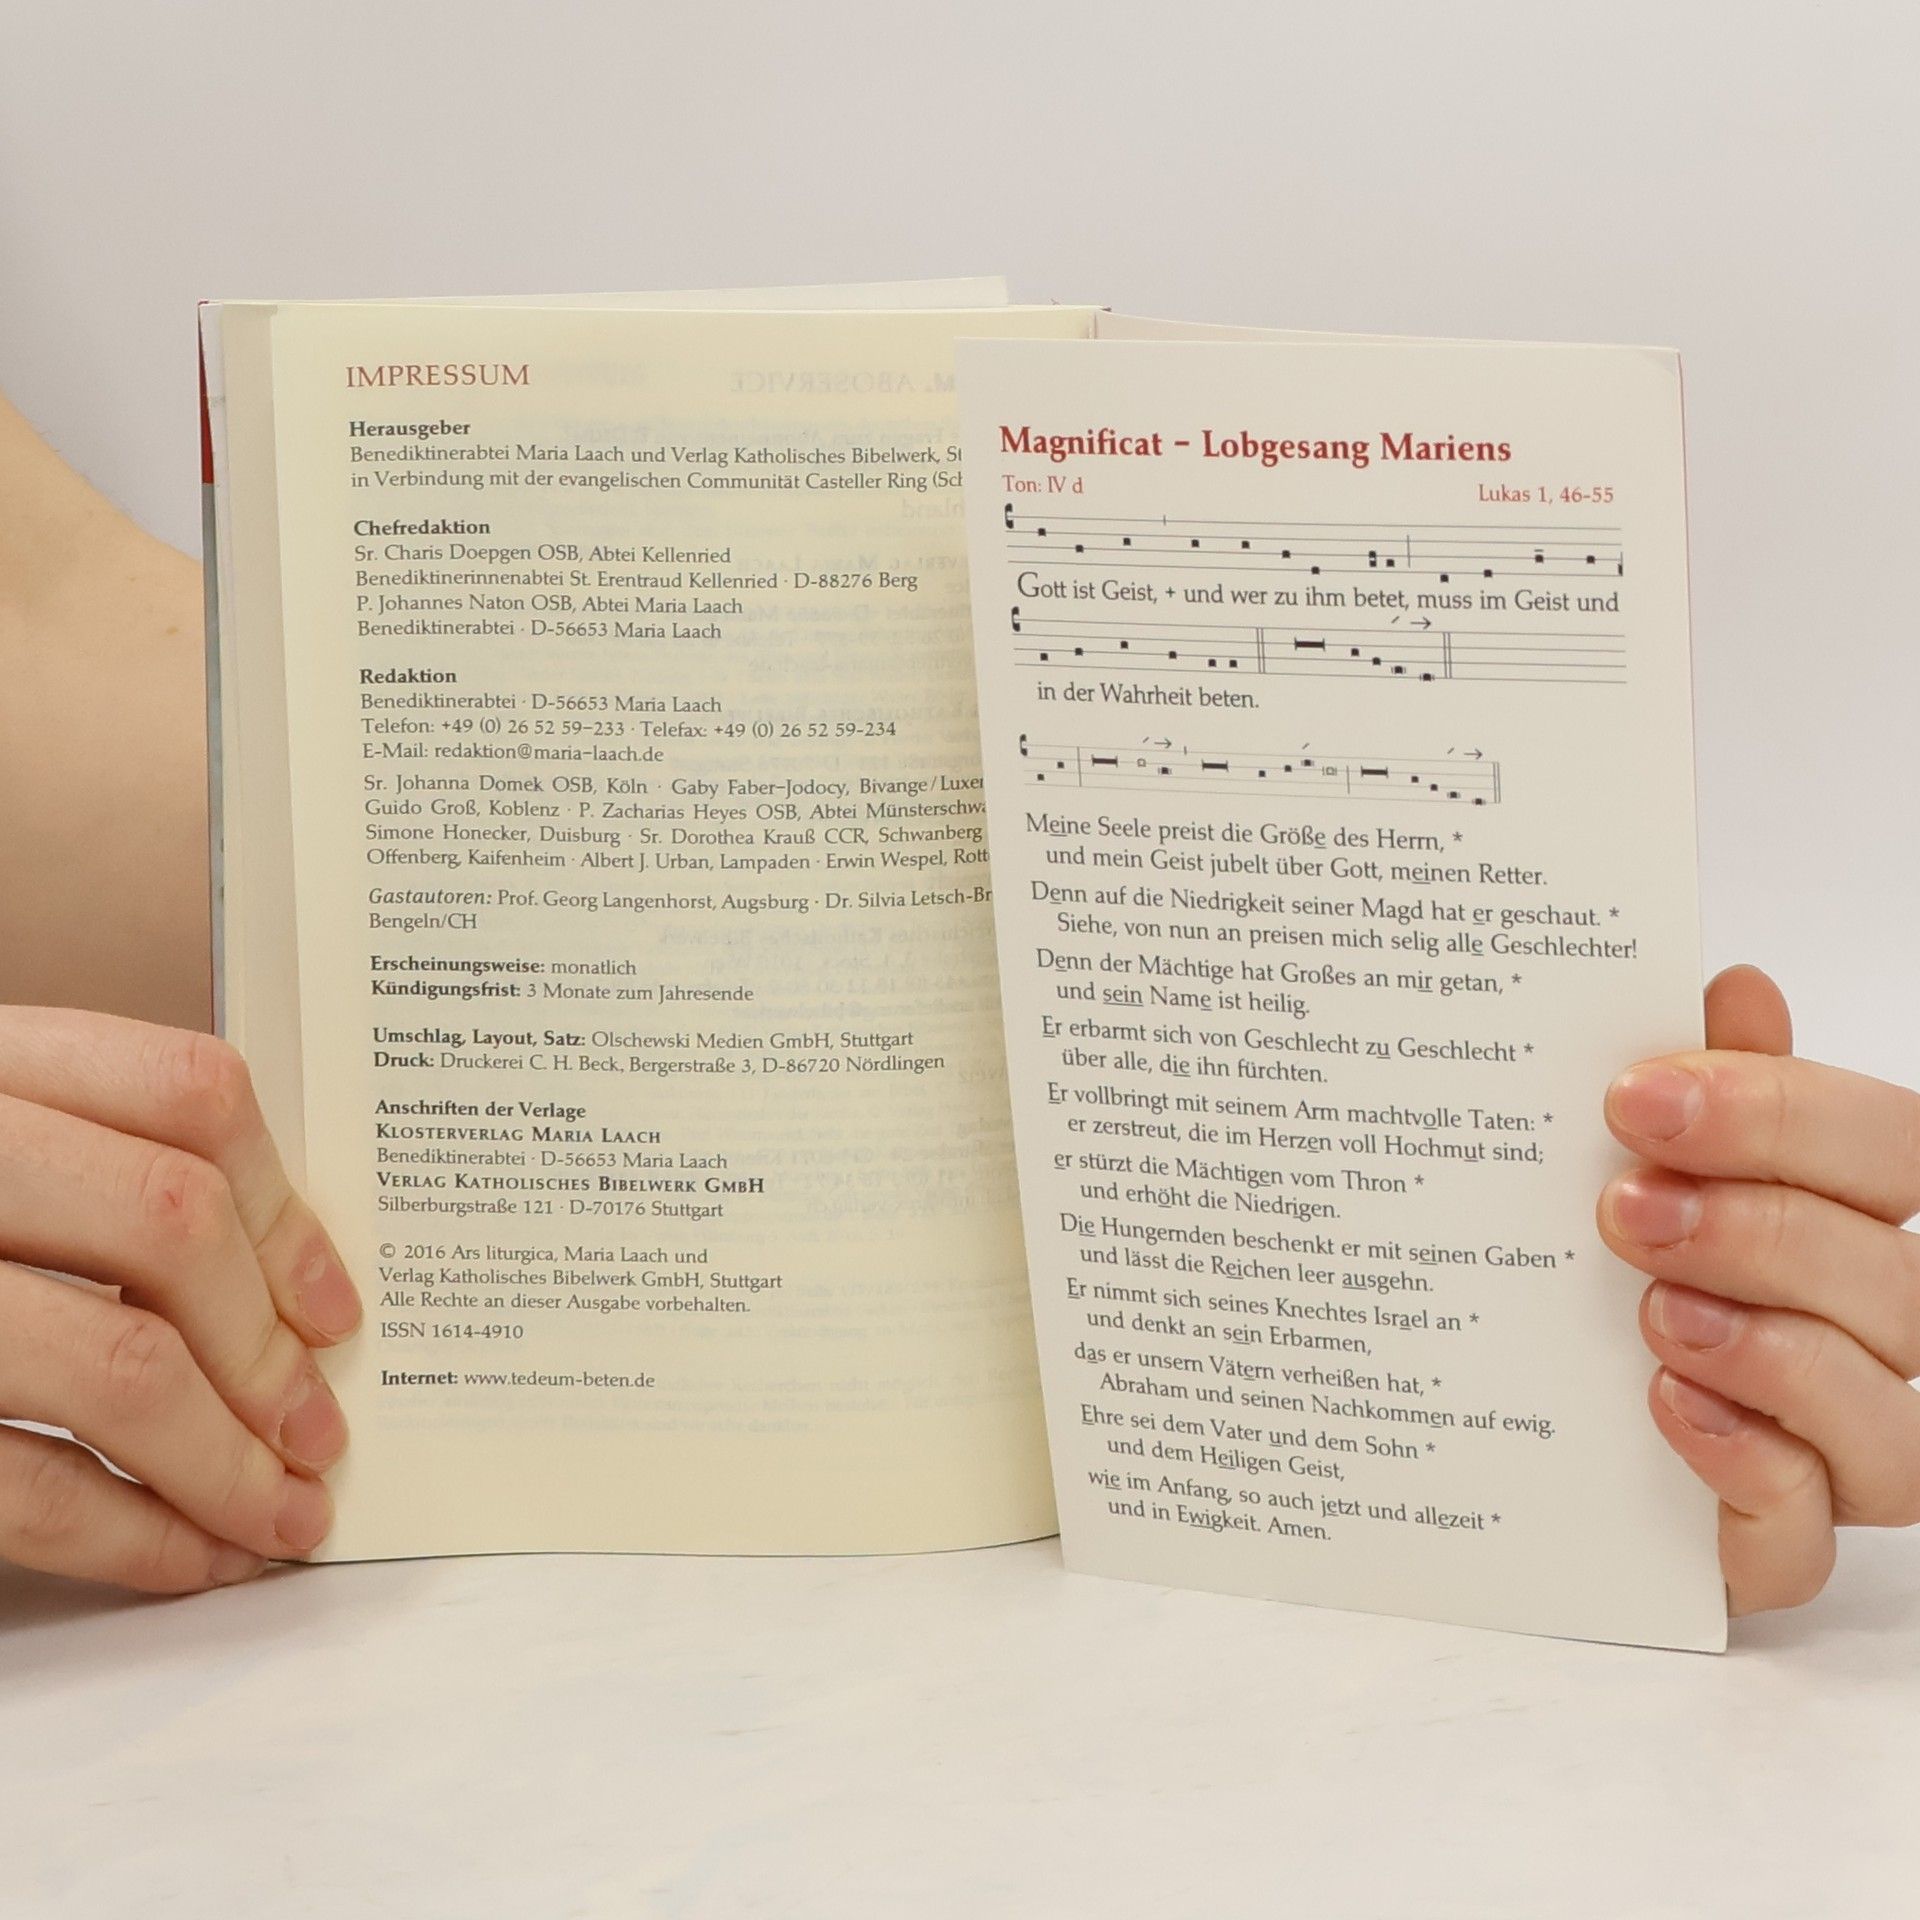 IMPRESSUM
Herausgeber
Benediktinerabtei Maria Laach und Verlag Katholisches Bibelwerk, St
in Verbindung mit der evangelischen Communität Casteller Ring (Sch
Chefredaktion
Sr. Charis Doepgen OSB, Abtei Kellenried
Benediktinerinnenabtei St. Erentraud Kellenried · D-88276 Berg
P. Johannes Naton OSB, Abtei Maria Laach
Benediktinerabtei · D-56653 Maria Laach
Redaktion
Benediktinerabtei · D-56653 Maria Laach
Telefon: +49 (0) 26 52 59-233 · Telefax: +49 (0) 26 52 59-234
E-Mail: redaktion@maria-laach.de
Sr. Johanna Domek OSB, Köln · Gaby Faber-Jodocy, Bivange/Luxe
Guido Groß, Koblenz · P. Zacharias Heyes OSB, Abtei Münsterschwa
Simone Honecker, Duisburg · Sr. Dorothea Krauß CCR, Schwanberg
Offenberg, Kaifenheim · Albert J. Urban, Lampaden · Erwin Wespel, Rott
Gastautoren: Prof. Georg Langenhorst, Augsburg · Dr. Silvia Letsch-Br
Bengeln/CH
Erscheinungsweise: monatlich
Kündigungsfrist: 3 Monate zum Jahresende
Umschlag, Layout, Satz: Olschewski Medien GmbH, Stuttgart
Druck: Druckerei C. H. Beck, Bergerstraße 3, D-86720 Nördlingen
Anschriften der Verlage
KLOSTERVERLAG MARIA LAACH
Benediktinerabtei · D-56653 Maria Laach
VERLAG KATHOLISCHES BIBELWERK GMBH
Silberburgstraße 121 · D-70176 Stuttgart
© 2016 Ars liturgica, Maria Laach und
Verlag Katholisches Bibelwerk GmbH, Stuttgart
Alle Rechte an dieser Ausgabe vorbehalten.
ISSN 1614-4910
Internet: www.tedeum-beten.de
Magnificat – Lobgesang Mariens
Ton: IV d
Lukas 1, 46-55
Gott ist Geist, + und wer zu ihm betet, muss im Geist und
in der Wahrheit beten.
Meine Seele preist die Größe des Herrn, *
und mein Geist jubelt über Gott, meinen Retter.
Denn auf die Niedrigkeit seiner Magd hat er geschaut. *
Siehe, von nun an preisen mich selig alle Geschlechter!
Denn der Mächtige hat Großes an mir getan, *
und sein Name ist heilig.
Er erbarmt sich von Geschlecht zu Geschlecht *
über alle, die ihn fürchten.
Er vollbringt mit seinem Arm machtvolle Taten: *
er zerstreut, die im Herzen voll Hochmut sind;
er stürzt die Mächtigen vom Thron *
und erhöht die Niedrigen.
Die Hungernden beschenkt er mit seinen Gaben *
und lässt die Reichen leer ausgehn.
Er nimmt sich seines Knechtes Israel an *
und denkt an sein Erbarmen,
das er unsern Vätern verheißen hat, *
Abraham und seinen Nachkommen auf ewig.
Ehre sei dem Vater und dem Sohn *
und dem Heiligen Geist,
wie im Anfang, so auch jetzt und allezeit *
und in Ewigkeit. Amen.